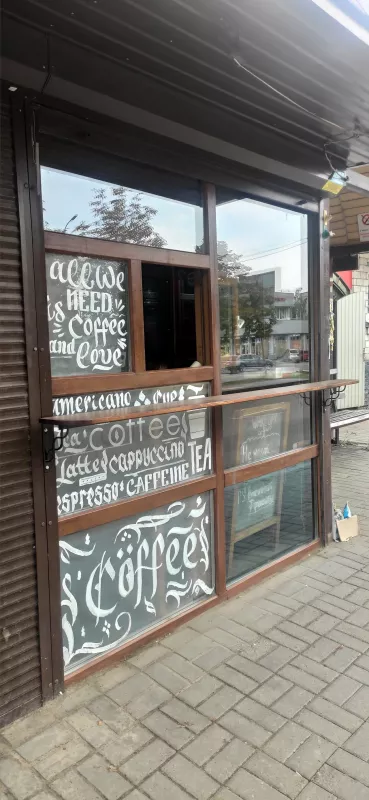 all we
is NEED
coffee
and love
americano & cup
coffee
Latte CAPPUCCINO TEA
espresso & CAFFEINE
Coffee